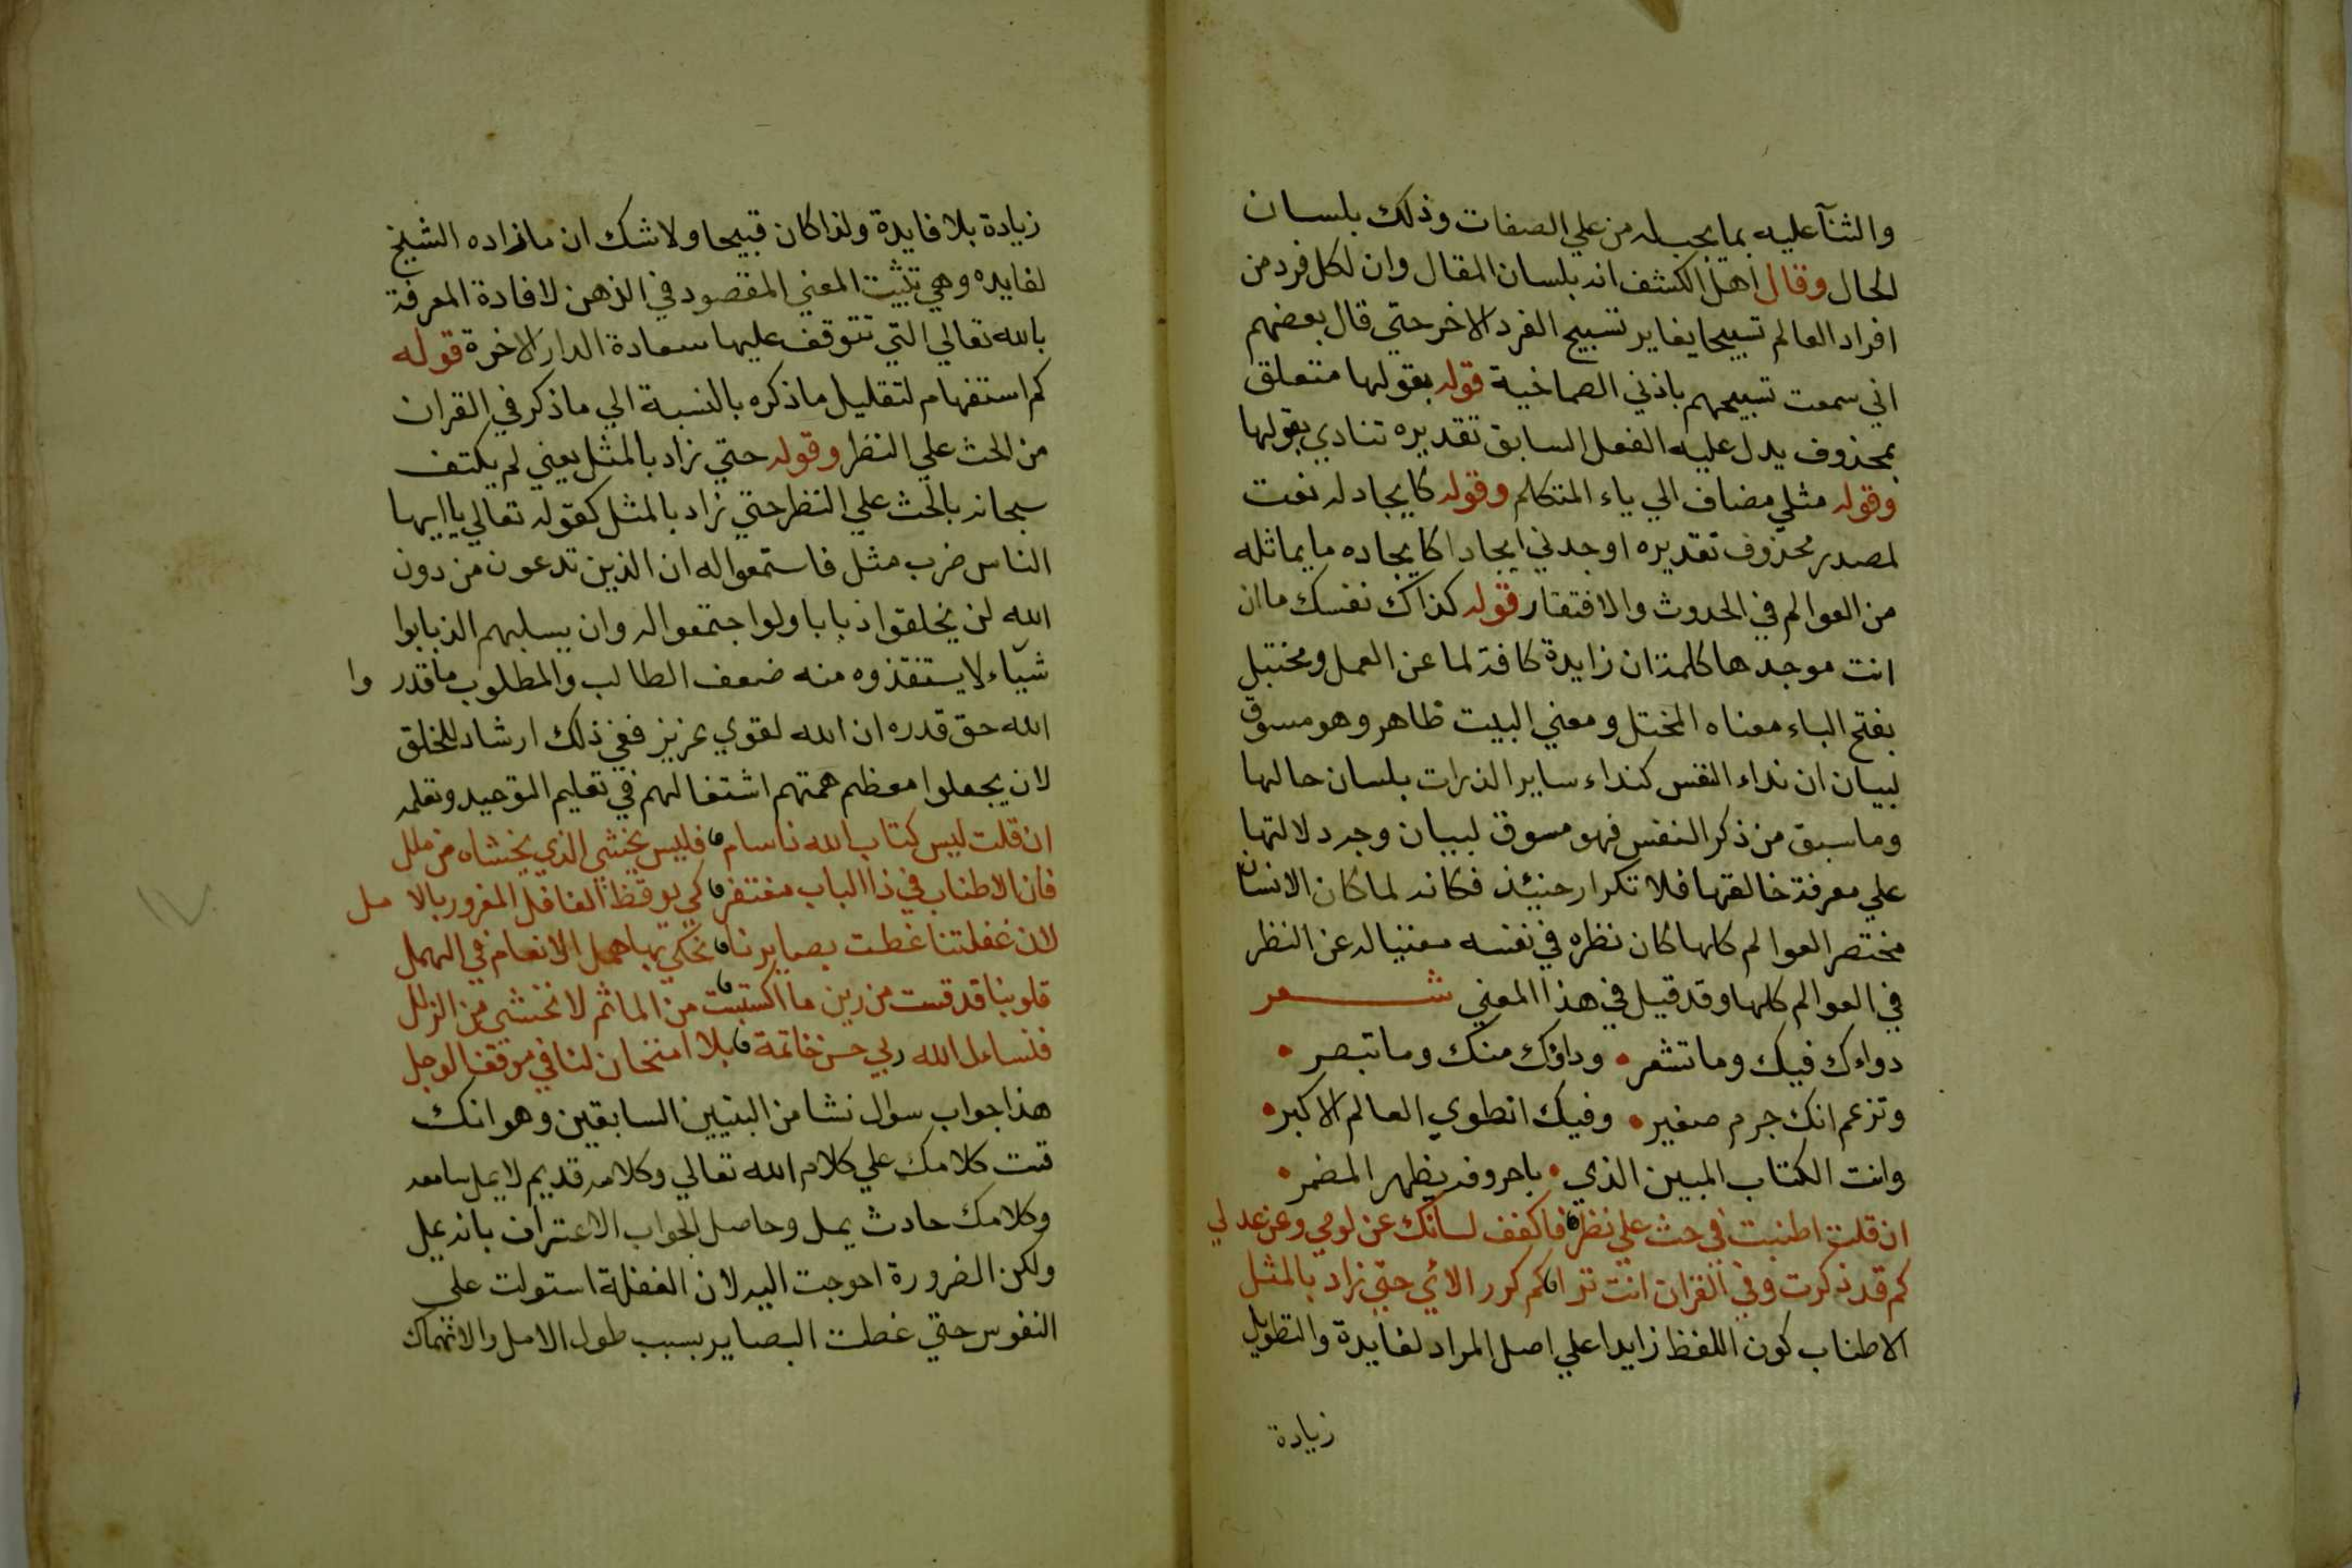 والثنآ عليه بما يجب له من علي الصفات وذلك بلسان
الحال وقال اهل الكشف انه بلسان المقال وان لكل فرد من
افراد العالم تسبيحا يغاير تسبيح الفرد الاخر حتي قال بعضهم
اني سمعت تسبيحهم باذني الصماخية قوله بقولها متعلق
بمحذوف يدل عليه الفعل السابق تقديره تنادي بقولها
وقوله مثلي مضاف الي ياء المتكلم وقوله كايجاد له نعت
لمصدر محذوف تقديره اوجدني ايجادا كايجاده ما يماثله
من العوالم في الحدوث والافتقار قوله كذاك نفسك ما ان
انت موجدها كلمة ان زايدة كافة لما عن العمل ومختبل
بفتح الباء معناه المختل ومعني البيت ظاهر وهو مسوق
لبيان ان نداء النفس كنداء ساير الذرات بلسان حالها
وما سبق من ذكر النفس فهو مسوق لبيان وجه دلالتها
علي معرفة خالقها فلا تكرار حنيئذ فكانه لما كان الانسان
مختصر العوالم كلها كان نظره في نفسه مغنيا له عن النظر
في العوالم كلها وقد قيل في هذا المعني شعر
دواءك فيك وما تشعر • وداؤك منك وما تبصر •
وتزعم انك جرم صغير • وفيك انطوي العالم الاكبر •
وانت الكتاب المبين الذي • باحروفه يظهر المضمر •
ان قلت اطنبت في حث علي نظر فاكفف لسانك عن لومي وعن عدلي
كم قد ذكرت وفي القران انت تر اكم كرر الائي حتي زاد بالمثل
الاطناب كون اللفظ زايدا علي اصل المراد لفايدة والتطويل
زيادة
زيادة بلا فايدة ولذا كان قبيحا ولا شك ان ما زاده الشيخ
لفايده وهي تثبيت المعني المقصود في الذهن لافادة المعرفة
بالله تعالي التي تتوقف عليها سعادة الدار الاخرة قوله
كم استفهام لتقليل ما ذكره بالنسبة الي ما ذكر في القران
من الحث علي النظر وقوله حتي زاد بالمثل يعني لم يكتف
سبحانه بالحث علي النظر حتي زاد بالمثل كقوله تعالي يا ايها
الناس ضرب مثل فاستمعوا له ان الذين تدعون من دون
الله لن يخلقوا ذبابا ولو اجتمعوا له وان يسلبهم الذبابوا
شيآء لا يستنقذوه منه ضعف الطالب والمطلوب ما قدر وا
الله حق قدره ان الله لقوي عزيز ففي ذلك ارشاد للخلق
لان يجعلوا معظم همتهم اشتغالهم في تعليم التوحيد وتعلمه
ان قلت ليس كتاب الله ناسام فليس يخشي الذي يخشاه من ملل
فان الاطناب في ذا الباب مغتفر كي يوقظ الغافل المغرور بالا مل
لان غفلتنا غطت بصايرنا نحكي بها همل الانعام في الهمل
قلوبنا قد قست من رين ما اكتسبت من الماثم لا نخشي من الزلل
فنساءل الله ربي حسن خاتمة بلا امتحان لنا في موقف الوجل
هذا جواب سوال نشا من البيتين السابقين وهو انك
قست كلامك علي كلام الله تعالي وكلامه قديم لا يمل سامعه
وكلامك حادث يمل وحاصل الجواب الاعتراف بانه يمل
ولكن الضرورة احوجت اليه لان الغفلة استولت علي
النفوس حتي غطت البصاير بسبب طول الامل والانهماك